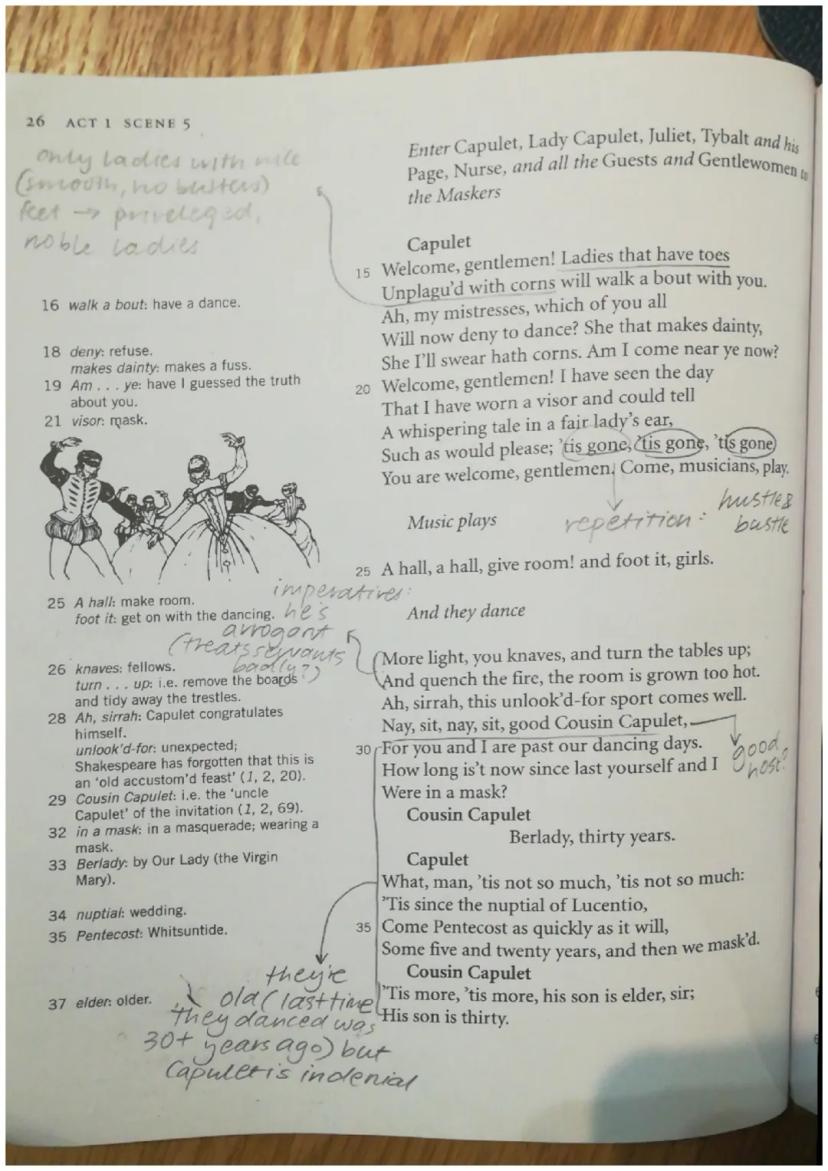 26 ACT 1 SCENE 5
only ladies with nice
(smooth, no blisters)
feet → priveleged,
noble ladies
16 walk a bout: have a dance.
18 deny: refuse.
makes dainty: makes a fuss.
19 Am . . . ye: have I guessed the truth
about you.
21 visor: mask.
25 A hall: make room.
foot it: get on with the dancing.
imperatives:
he's
arrogant
(treats servants
badly?)
26 knaves: fellows.
turn . . . up: i.e. remove the boards
and tidy away the trestles.
28 Ah, sirrah: Capulet congratulates
himself.
unlook'd-for: unexpected;
Shakespeare has forgotten that this is
an 'old accustom'd feast' (1, 2, 20).
29 Cousin Capulet: i.e. the 'uncle
Capulet' of the invitation (1, 2, 69).
32 in a mask: in a masquerade; wearing a
mask.
33 Berlady: by Our Lady (the Virgin
Mary).
34 nuptial: wedding.
35 Pentecost: Whitsuntide.
37 elder: older.
they're
old (last time
they danced was
30+ years ago) but
Capulet is in denial
Enter Capulet, Lady Capulet, Juliet, Tybalt and his
Page, Nurse, and all the Guests and Gentlewomen to
the Maskers
Capulet
15 Welcome, gentlemen! Ladies that have toes
Unplagu'd with corns will walk a bout with you.
Ah, my mistresses, which of you all
Will now deny to dance? She that makes dainty,
She I'll swear hath corns. Am I come near ye now?
20 Welcome, gentlemen! I have seen the day
That I have worn a visor and could tell
A whispering tale in a fair lady's ear,
Such as would please; 'tis gone, 'tis gone, 'tis gone
You are welcome, gentlemen. Come, musicians, play.
Music plays
repetition: hustle &
bustle
25 A hall, a hall, give room! and foot it, girls.
And they dance
More light, you knaves, and turn the tables up;
And quench the fire, the room is grown too hot.
Ah, sirrah, this unlook'd-for sport comes well.
Nay, sit, nay, sit, good Cousin Capulet,
30 For you and I are past our dancing days.
good
host?
How long is't now since last yourself and I
Were in a mask?
Cousin Capulet
Berlady, thirty years.
Capulet
What, man, 'tis not so much, 'tis not so much:
'Tis since the nuptial of Lucentio,
35 Come Pentecost as quickly as it will,
Some five and twenty years, and then we mask'd.
Cousin Capulet
'Tis more, 'tis more, his son is elder, sir;
His son is thirty.